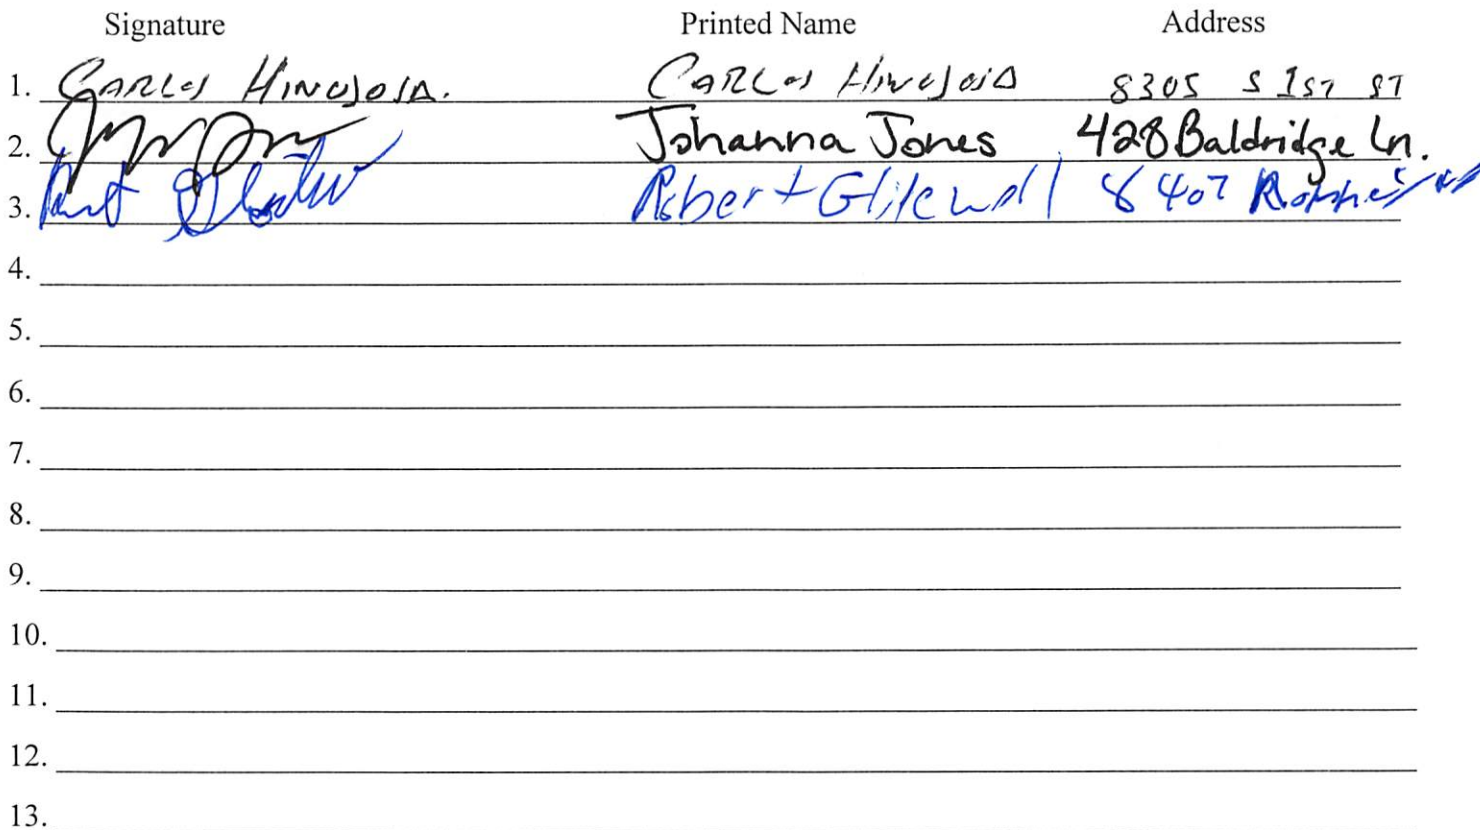 Signature Printed Name Address
1. CARLOS HINOJOSA. CARLOS HINOJOSA 8305 S 1ST ST
2. Johanna Jones 428 Baldridge Ln.
3. Robert 8407
4.
5.
6.
7.
8.
9.
10.
11.
12.
13.